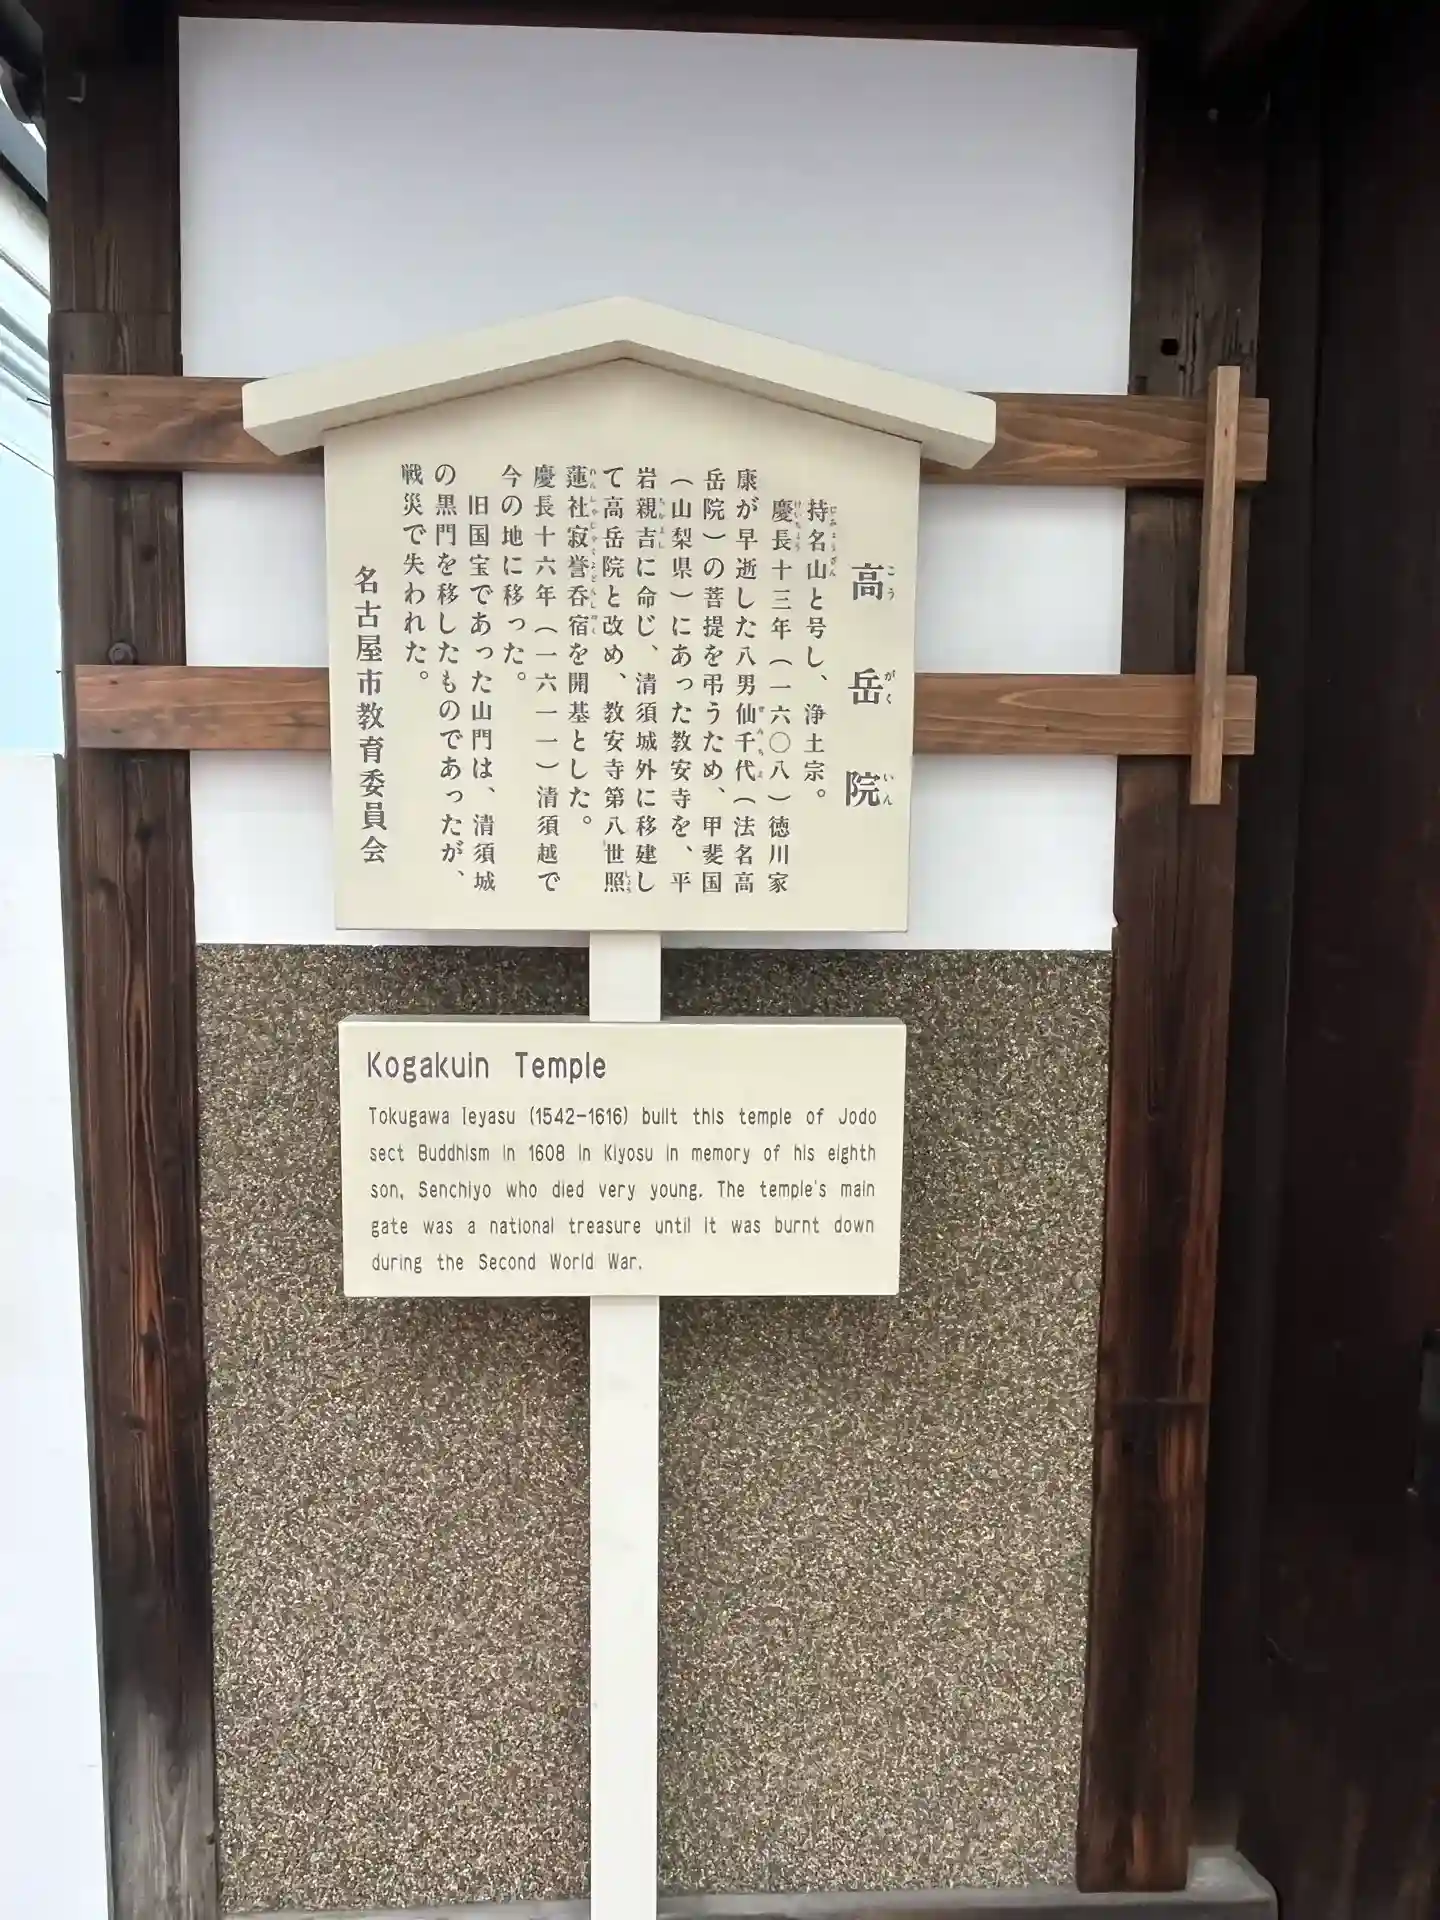 高岳院
持名山と号し、浄土宗。
慶長十三年(一六〇八)徳川家
康が早逝した八男仙千代(法名高
岳院)の菩提を弔うため、甲斐国
(山梨県)にあった教安寺を、平
岩親吉に命じ、清須城外に移建し
て高岳院と改め、教安寺第八世照
蓮社寂誉呑宿を開基とした。
慶長十六年(一六一一)清須越で
今の地に移った。
旧国宝であった山門は、清須城
の黒門を移したものであったが、
戦災で失われた。
名古屋市教育委員会
Kogakuin Temple
Tokugawa Ieyasu (1542-1616) built this temple of Jodo
sect Buddhism in 1608 in Kiyosu in memory of his eighth
son, Senchiyo who died very young. The temple's main
gate was a national treasure until it was burnt down
during the Second World War.